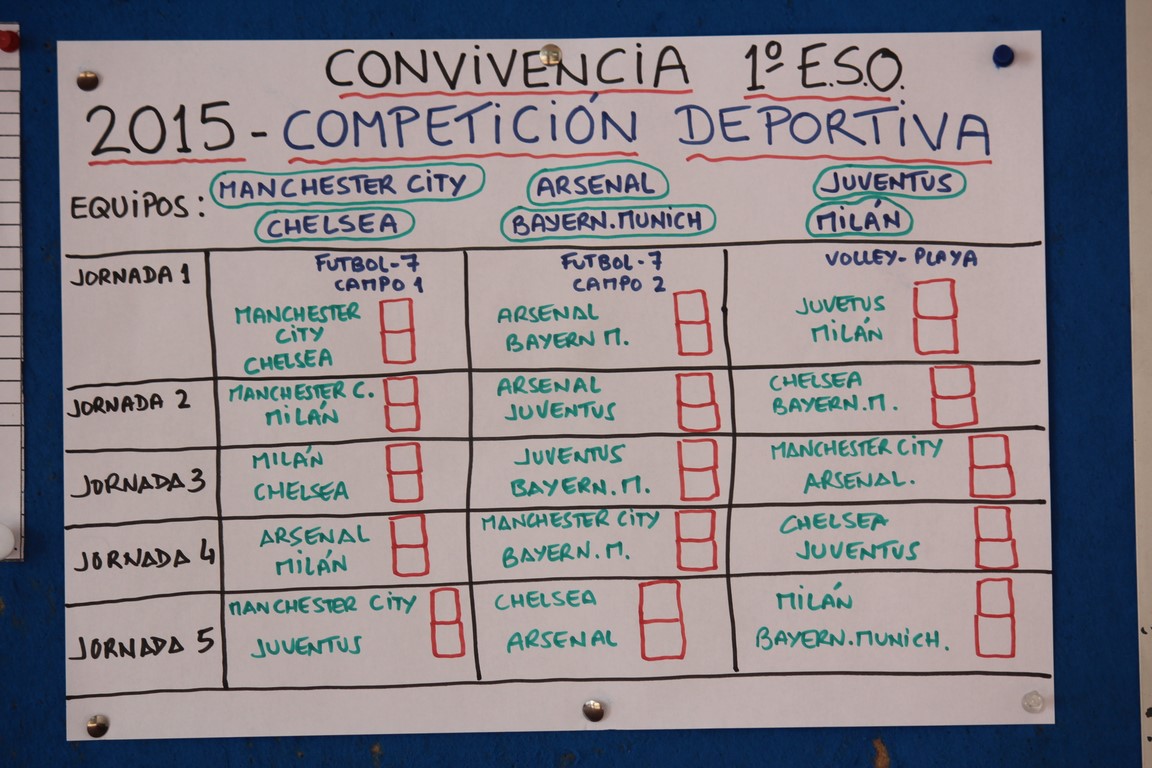 CONVIVENCIA 1º E.S.O.
2015 - COMPETICIÓN DEPORTIVA
EQUIPOS: MANCHESTER CITY ARSENAL JUVENTUS
CHELSEA BAYERN.MUNICH MILÁN
JORNADA 1 FUTBOL-7 FUTBOL-7 VOLLEY-PLAYA
CAMPO 1 CAMPO 2
MANCHESTER ARSENAL JUVETUS
CITY BAYERN M. MILÁN
CHELSEA
JORNADA 2 MANCHESTER C. ARSENAL CHELSEA
MILÁN JUVENTUS BAYERN.M.
JORNADA 3 MILÁN JUVENTUS MANCHESTER CITY
CHELSEA BAYERN.M. ARSENAL.
JORNADA 4 ARSENAL MANCHESTER CITY CHELSEA
MILÁN BAYERN.M. JUVENTUS
JORNADA 5 MANCHESTER CITY CHELSEA MILÁN
JUVENTUS ARSENAL BAYERN.MUNICH.